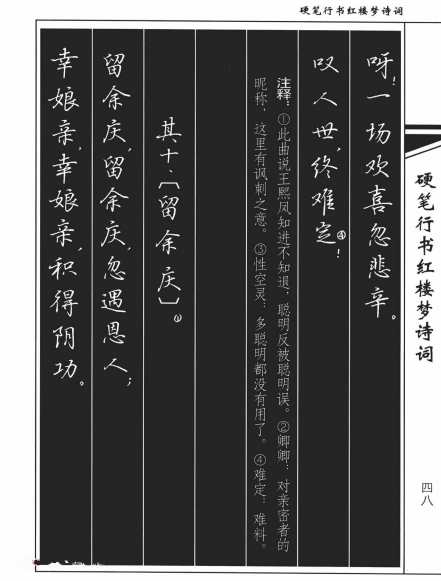 硬笔行书红楼梦诗词
呀!一场欢喜忽悲辛。
叹人世,终难定④!
注释:①此曲说王熙凤知进不知退,聪明反被聪明误。②卿卿:对亲密者的
昵称,这里有讽刺之意。③性空灵:多聪明都没有用了。④难定:难料。
其十、〔留余庆〕①
留余庆,留余庆,忽遇恩人;
幸娘亲,幸娘亲,积得阴功。
硬笔行书红楼梦诗词
四八